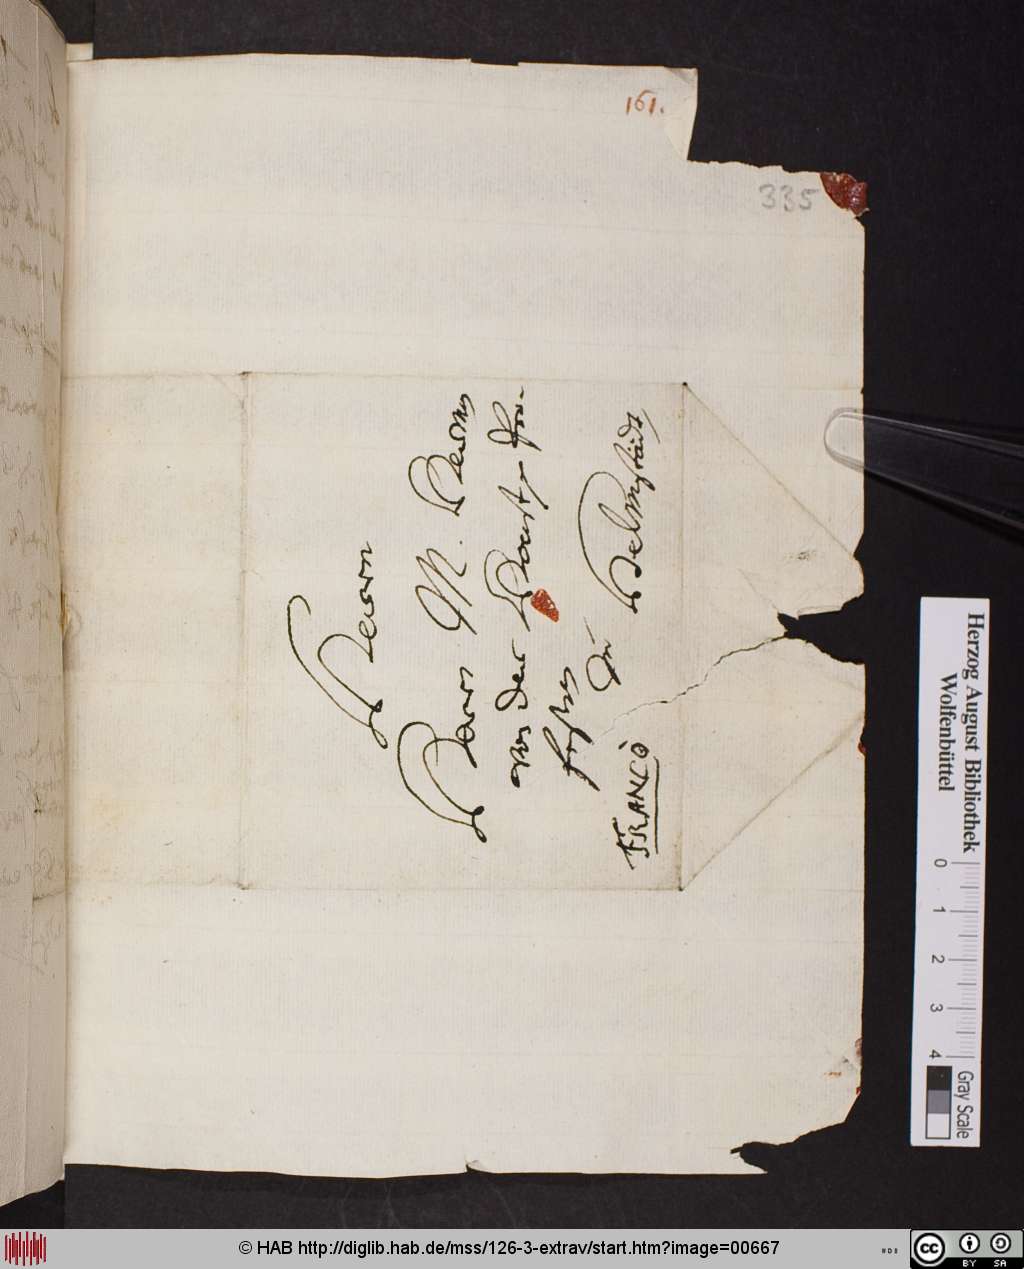 161.
335
Herrn
Herrn M. Herm
von der Hardt Pro-
fessor
Zu Helmstädt
FRANCÒ
Herzog August Bibliothek
Wolfenbüttel
0 1 2 3 4
Gray Scale
© HAB http://diglib.hab.de/mss/126-3-extrav/start.htm?image=00667
cc BY SA